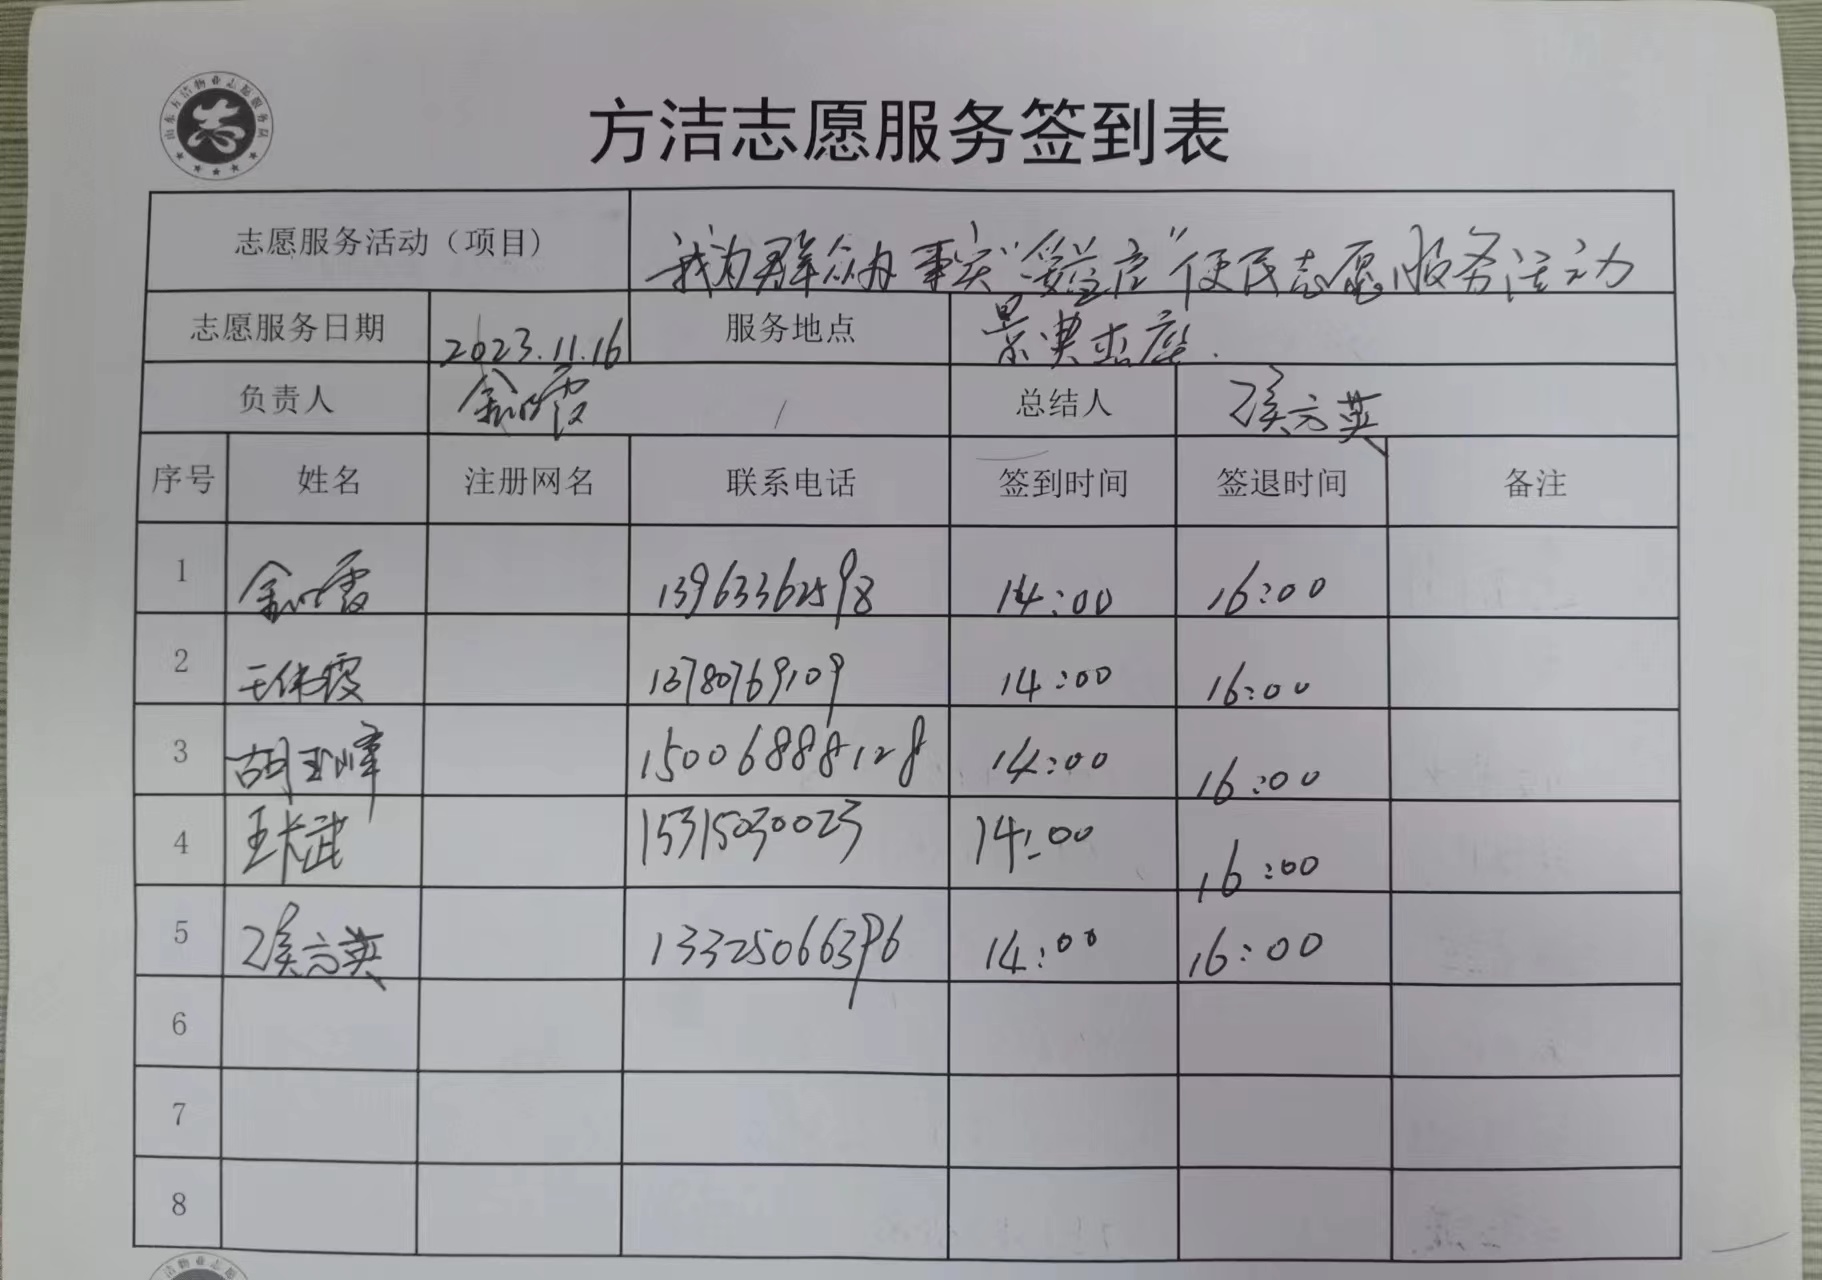 山东方洁物业志愿服务队
志
方洁志愿服务签到表
志愿服务活动（项目） 我为群众办事实"爱立方"便民志愿服务活动
志愿服务日期 2023.11.16 服务地点 景典
负责人 总结人 侯方英
序号 姓名 注册网名 联系电话 签到时间 签退时间 备注
1 13963362598 14:00 16:00
2 王伟霞 13780769109 14:00 16:00
3 胡玉峰 15006888128 14:00 16:00
4 王长武 15315030023 14:00 16:00
5 侯方英 13325066396 14:00 16:00
6
7
8
洁物业志愿